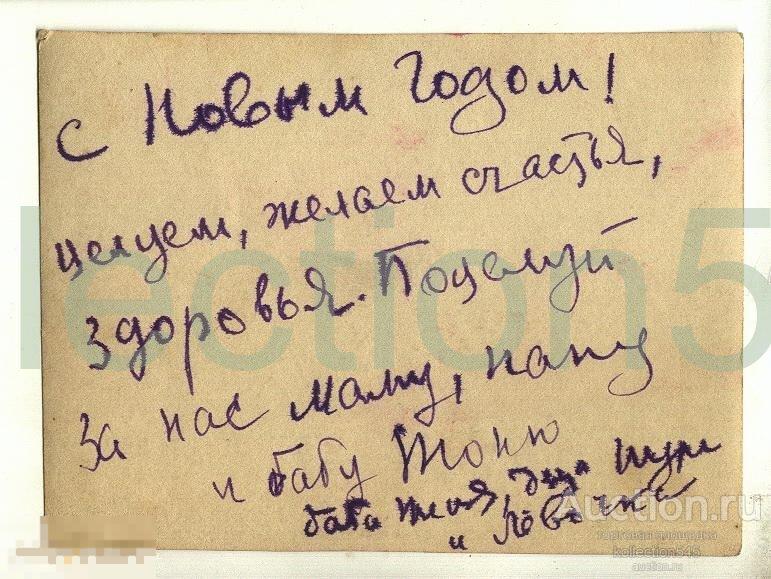 С Новым Годом!
целуем, желаем счастья,
здоровья. Поцелуй
за нас маму, папу
и бабу Тоню
баба Женя, деда Шура
и Лёвочка
lection5
Auction.ru
торговая площадка
kollection545
auction.ru